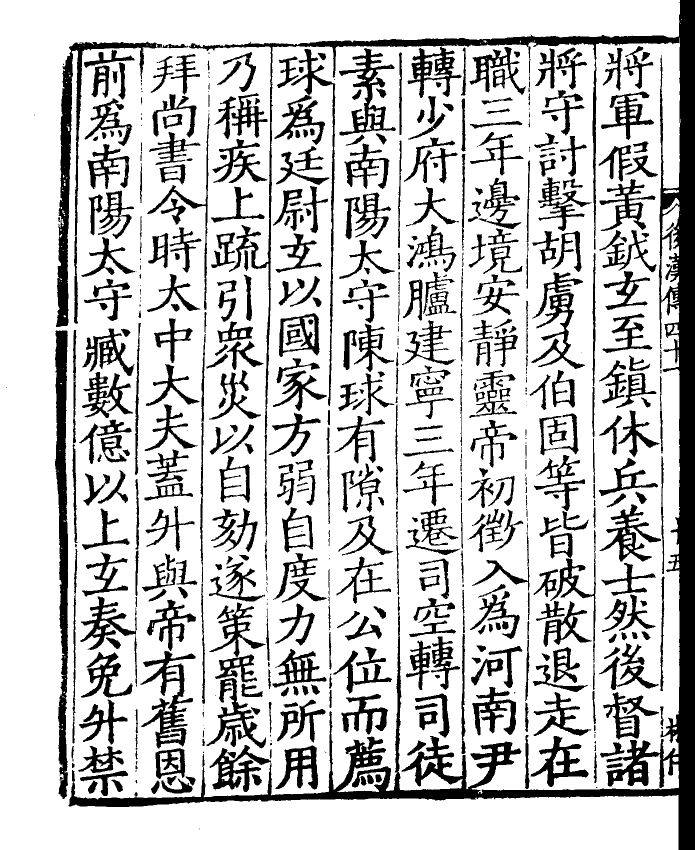 將軍假黃鉞玄至鎮休兵養士然後督諸
將守討擊胡虜及伯固等皆破散退走在
職三年邊境安靜靈帝初徵入爲河南尹
轉少府大鴻臚建寧三年遷司空轉司徒
素與南陽太守陳球有隙及在公位而薦
球爲廷尉玄以國家方弱自度力無所用
乃稱疾上疏引衆災以自劾遂策罷歲餘
拜尚書令時太中大夫蓋升與帝有舊恩
前爲南陽太守臧數億以上玄奏免升禁